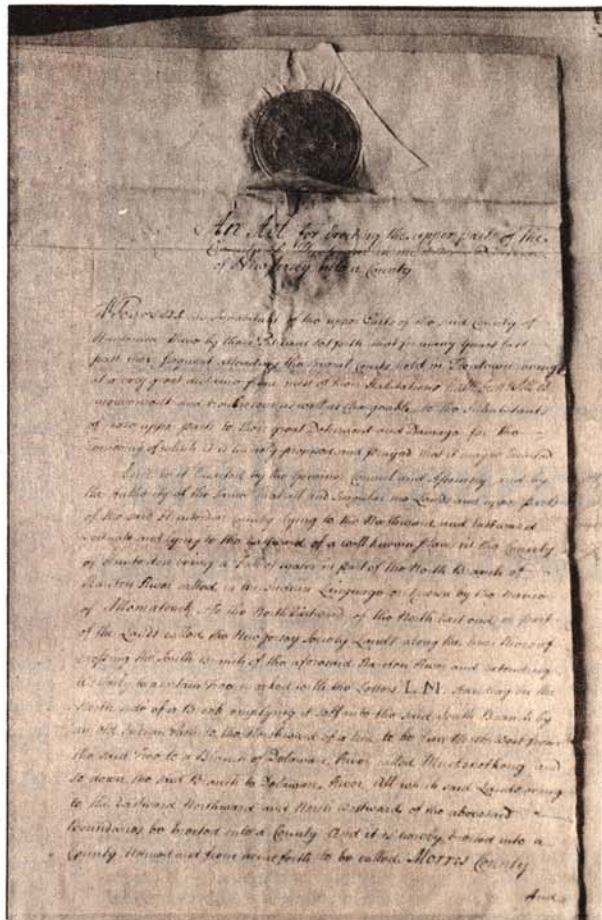 An Act for Erecting the upper parts of the
in
of New Jersey into a County
Whereas the Inhabitants of the upper Parts of the said County of
Hunterdon Have by their Petitions set forth that for many Years last
past their frequent Attending the several Courts held in Trentown
at a very great distance from most of their Habitations hath
inconvenient and troublesome as well as Chargeable to the Inhabitants
of said upper parts to their great Detriment and Damage for the
removing of which it is humbly proposed and prayed that it may be Enacted
Be it Enacted by the Governor Council and Assembly and by
the Authority of the Same that all and Singular the Lands and upper parts
of the said Hunterdon County lying to the Northward and Eastward
Situate and lying to the Eastward of a well known place in the County
of Hunterdon being a Fall of water in part of the North Branch of
Rariton River called in the Indian Language or known by the Name
of Allomatonck To the North Eastward of the North East end or part
of the Lands called the New Jersey Society Lands along the line thereof
crossing the South Branch of the aforesaid Rariton River and extending
westerly to a certain Tree marked with the Letters L.M. standing on the
North side of a Brook emptying it self into the said South Branch by
an old Indian Path to the Northward of a line to be run Northwest from
the said Tree to a Branch of Delaware River called Musconetkong and
so down the said Branch to Delaware River All which said Lands being
to the Eastward Northward and North Westward of the abovesaid
Boundaries be Erected into a County And it is hereby Erected into a
County Named and from henceforth to be called Morris County
And